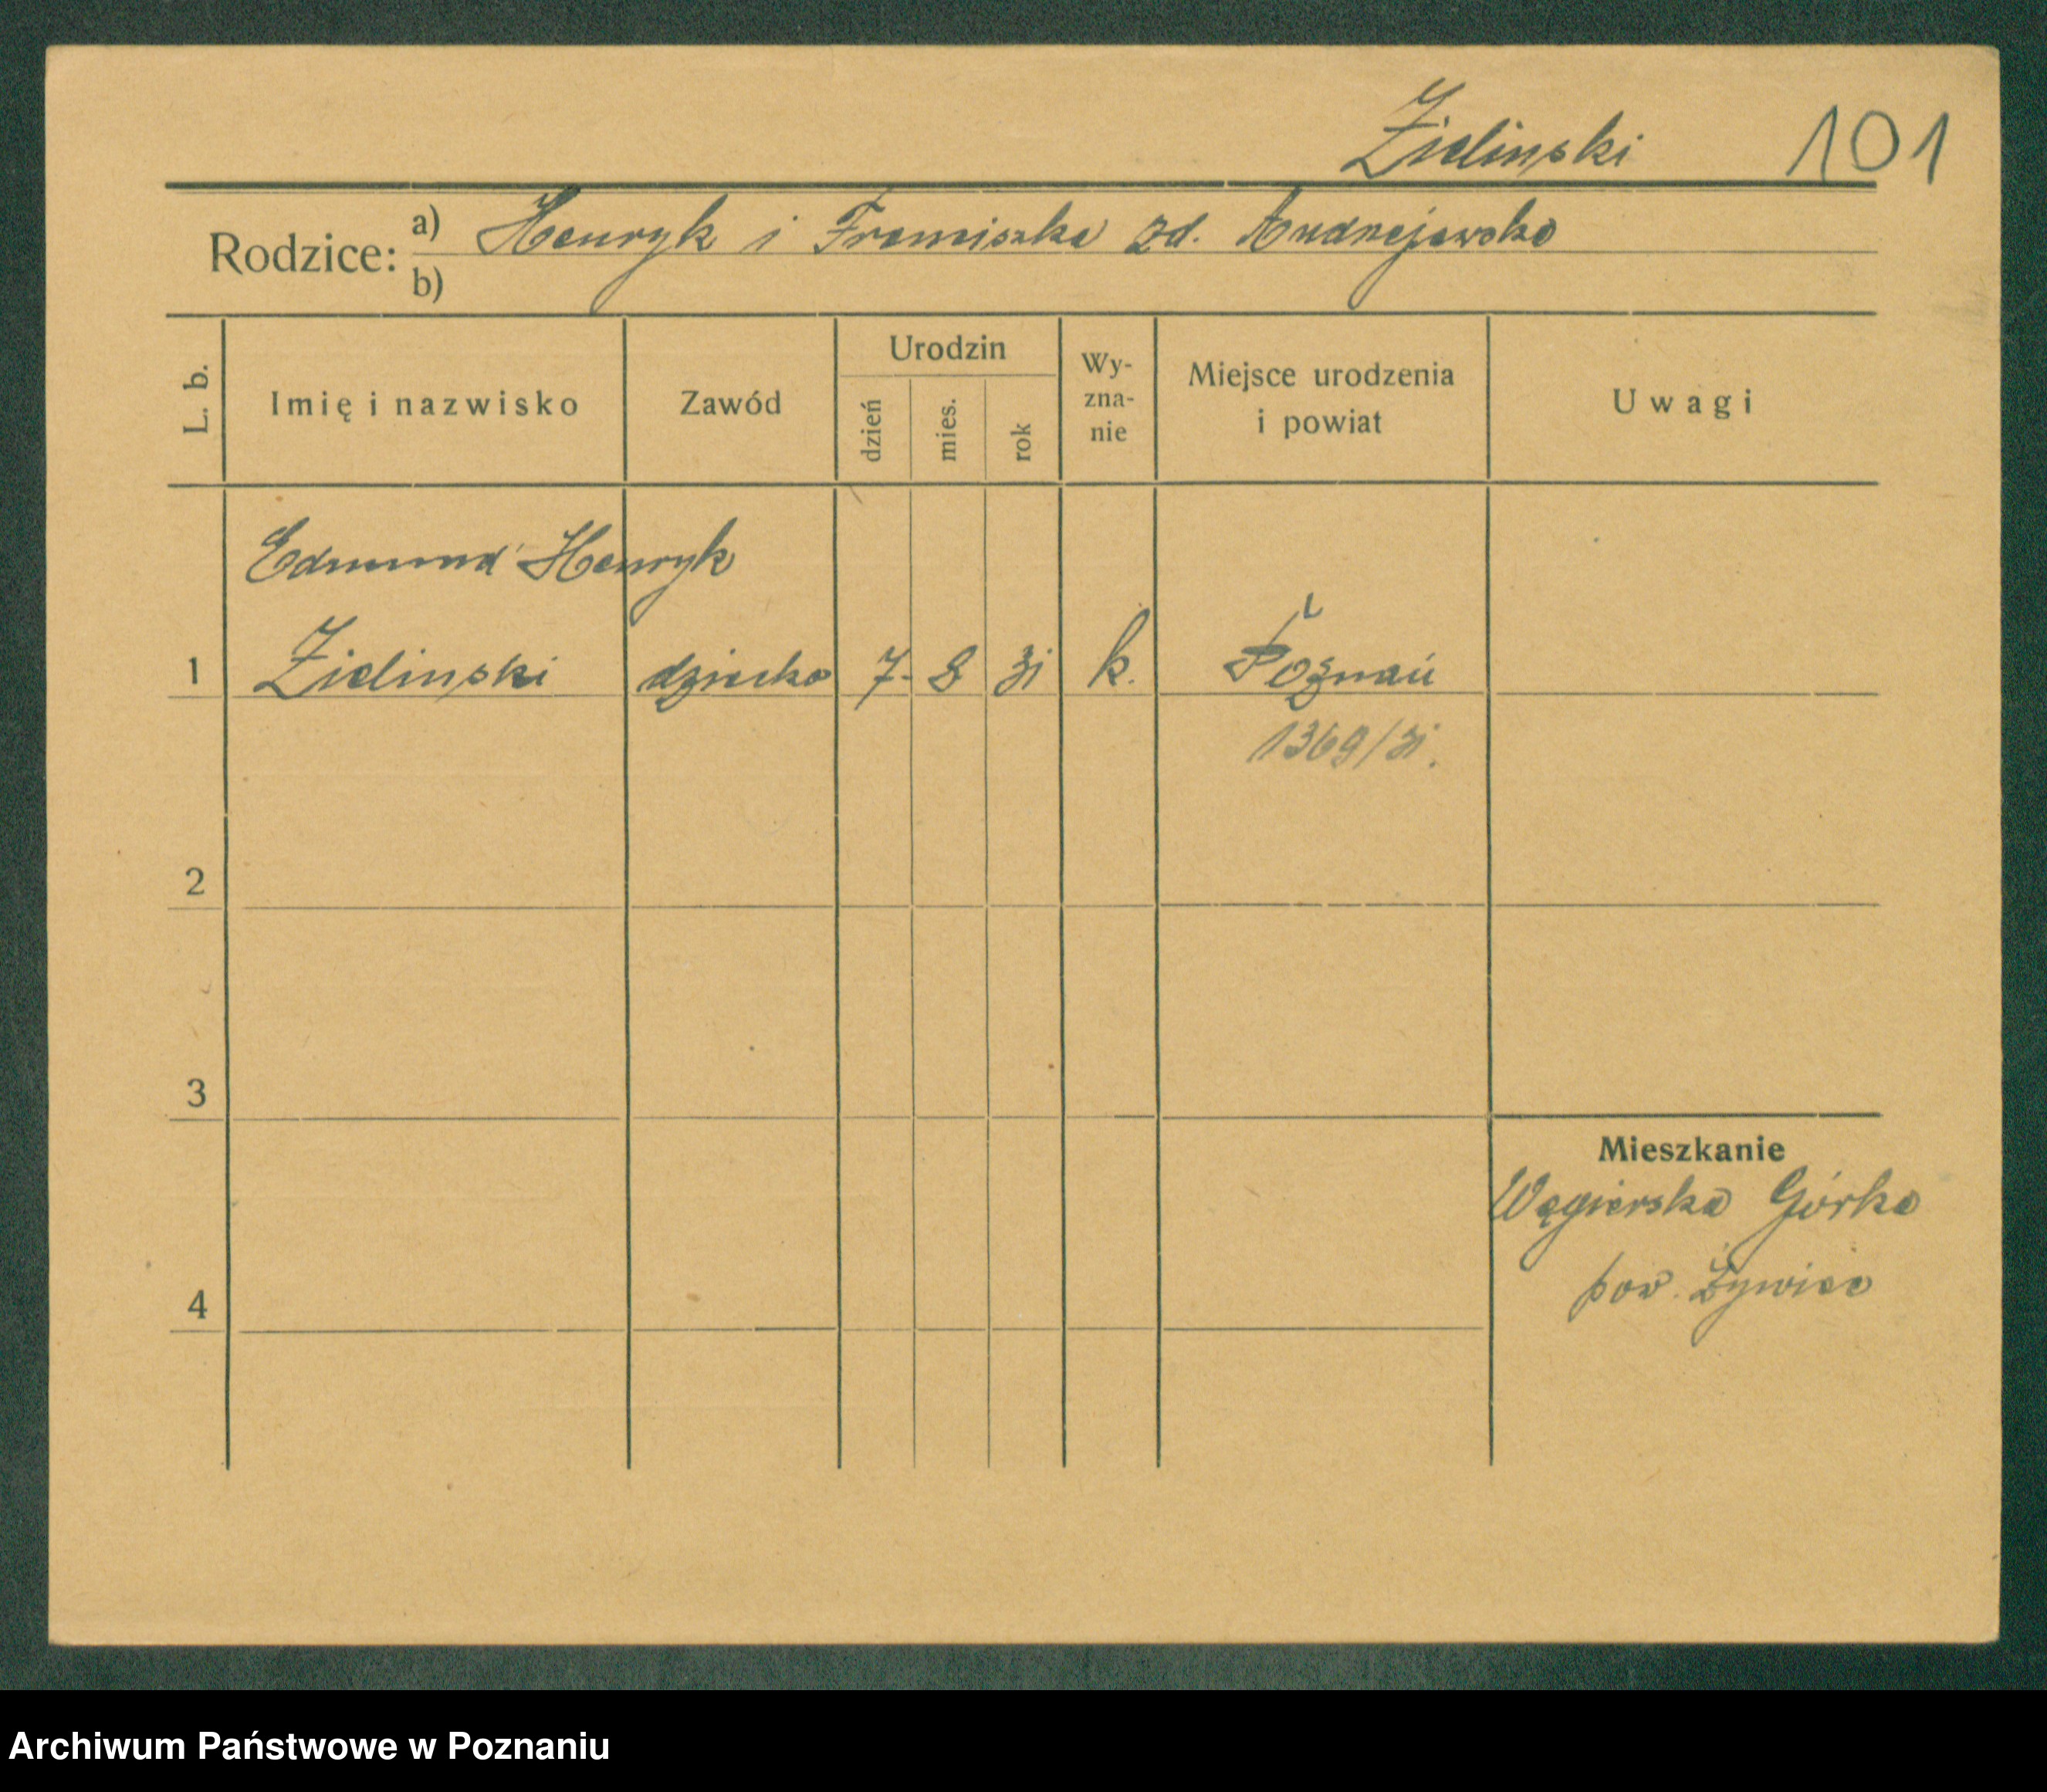 Zielinski 101
Rodzice: a) Henryk i Franciszka zd. Andrzejewska
b)
L. b.
Imię i nazwisko
Zawód
Urodzin
dzień
mies.
rok
Wy-
zna-
nie
Miejsce urodzenia
i powiat
Uwagi
Edmund Henryk
1 Zielinski dziecko 7. 8 31 k. Poznań
1369/31.
2
3
Mieszkanie
Węgierska Górka
pow. Żywiec
4
Archiwum Państwowe w Poznaniu